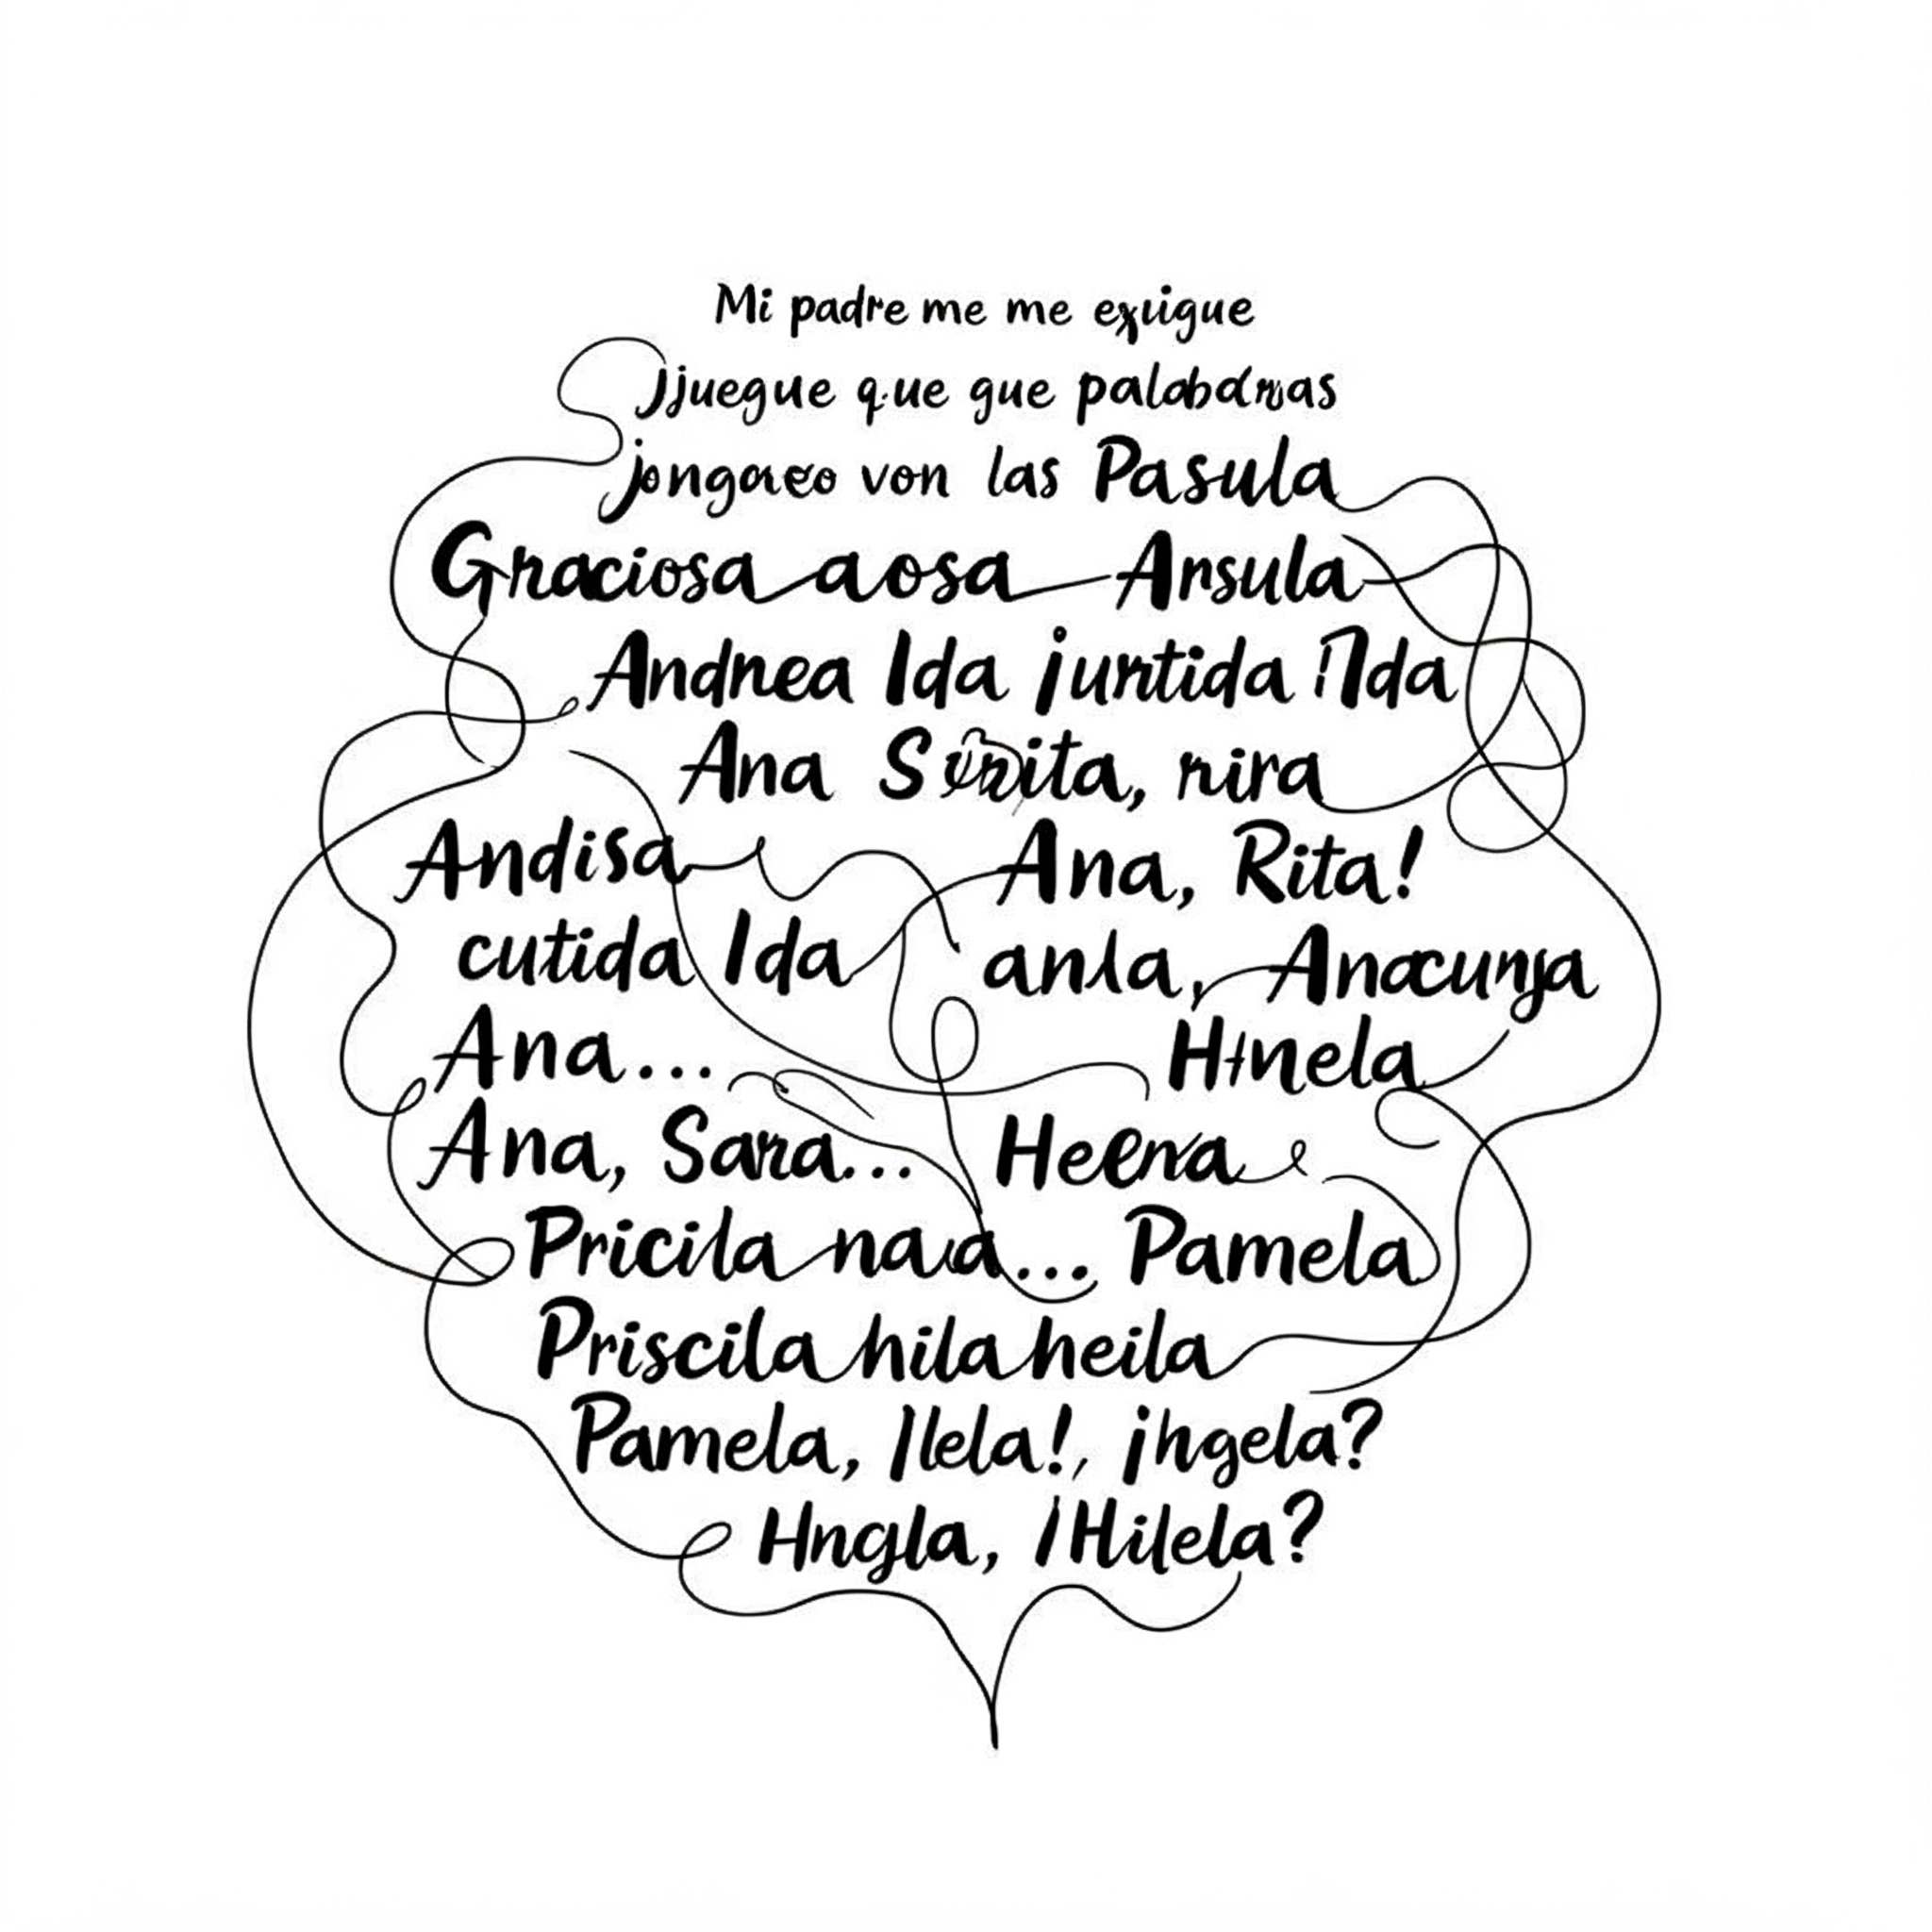 Mi padre me me exuigue
Jjuegue que gue
von las Pasula
Graciosa aosa Arsula
Andnea Ida juntida Ida
Ana rira
Andisa Ana, Rita!
cutida Ida anla, Anacunja
Ana... Hinela
Ana, Sara... Heerva
Pricila naua... Pamela
Priscila hila heila
Pamela, Ilela!, ¡hgela?
Hngla, ¡Hilela?